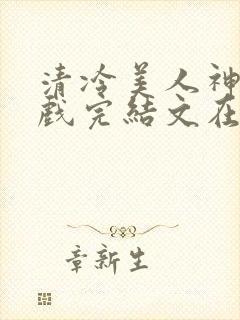 清冷美人神
戲完結文在
章新生